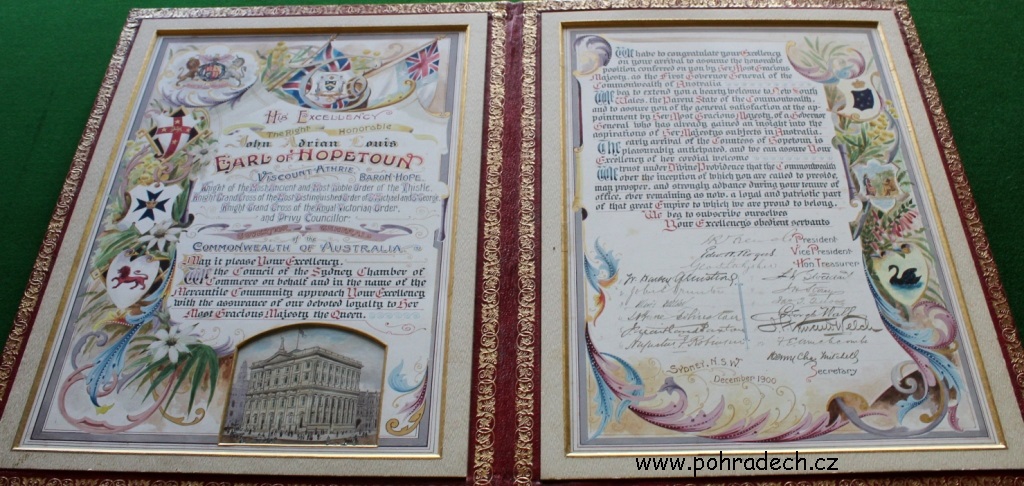 His Excellency
The Right Honorable
John Adrian Louis
Earl of Hopetoun
Viscount Athrie Baron Hope
Knight of the Most Ancient and Most Noble Order of the Thistle,
Knight Grand Cross of the Most Distinguished Order of S. Michael and S. George,
Knight Grand Cross of the Royal Victorian Order,
and Privy Councillor
of the
Commonwealth of Australia
May it please Your Excellency,
We the Council of the Sydney Chamber of
Commerce on behalf and in the name of the
Mercantile Community approach Your Excellency
with the assurance of our devoted loyalty to Her
Most Gracious Majesty the Queen.
We have to congratulate your Excellency
on your arrival to assume the honorable
position conferred on you by Her Most Gracious
Majesty, as the First Governor General of the
Commonwealth of Australia
We beg to extend you a hearty welcome to New South
Wales, the Parent State of the Commonwealth,
and to assure you of the general satisfaction at the ap-
pointment by Her Most Gracious Majesty, of a Governor
General who has already gained an insight into the
aspirations of Her Majestys subjects in Australia.
The early arrival of the Countess of Hopetoun is
pleasurably anticipated, and we can assure Your
Excellency of her cordial welcome
We trust under Divine Providence that the Commonwealth
over the inception of which you are called to preside,
may prosper, and strongly advance during your tenure of
office, ever remaining as now, a loyal and patriotic part
of that great Empire to which we are proud to belong.
We beg to subscribe ourselves
Your Excellency's obedient servants
President
Vice President
Hon Treasurer
Secretary
Sydney, N.S.W.
December 1900
www.pohradech.cz